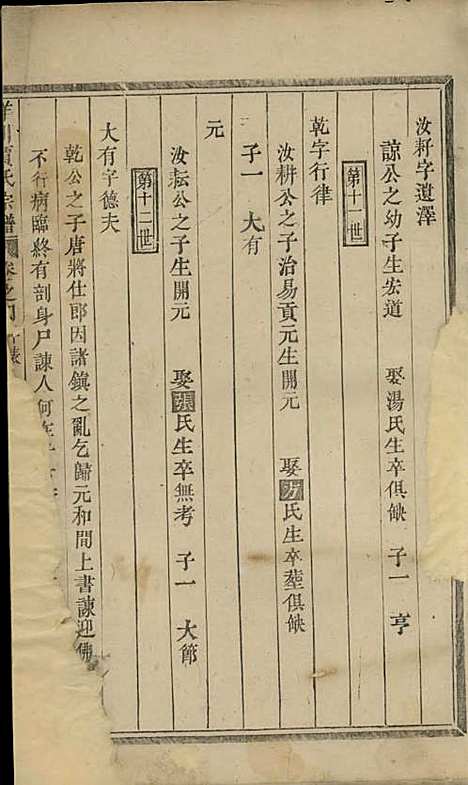 汝耔字遺澤
諒公之幼子生宏道 娶湯氏生卒俱缺 子一 亨
第十一世
乾字行律
汝耕公之子治易貢元生開元 娶方氏生卒塟俱缺
子一 大有
元
汝耘公之子生開元 娶張氏生卒無考 子一 大節
第十二世
大有字德夫
乾公之子唐將仕郎因諸鎮之亂乞歸元和間上書諫迎佛
不行病臨終有剖身尸諫人何在
氏宗譜 卷之